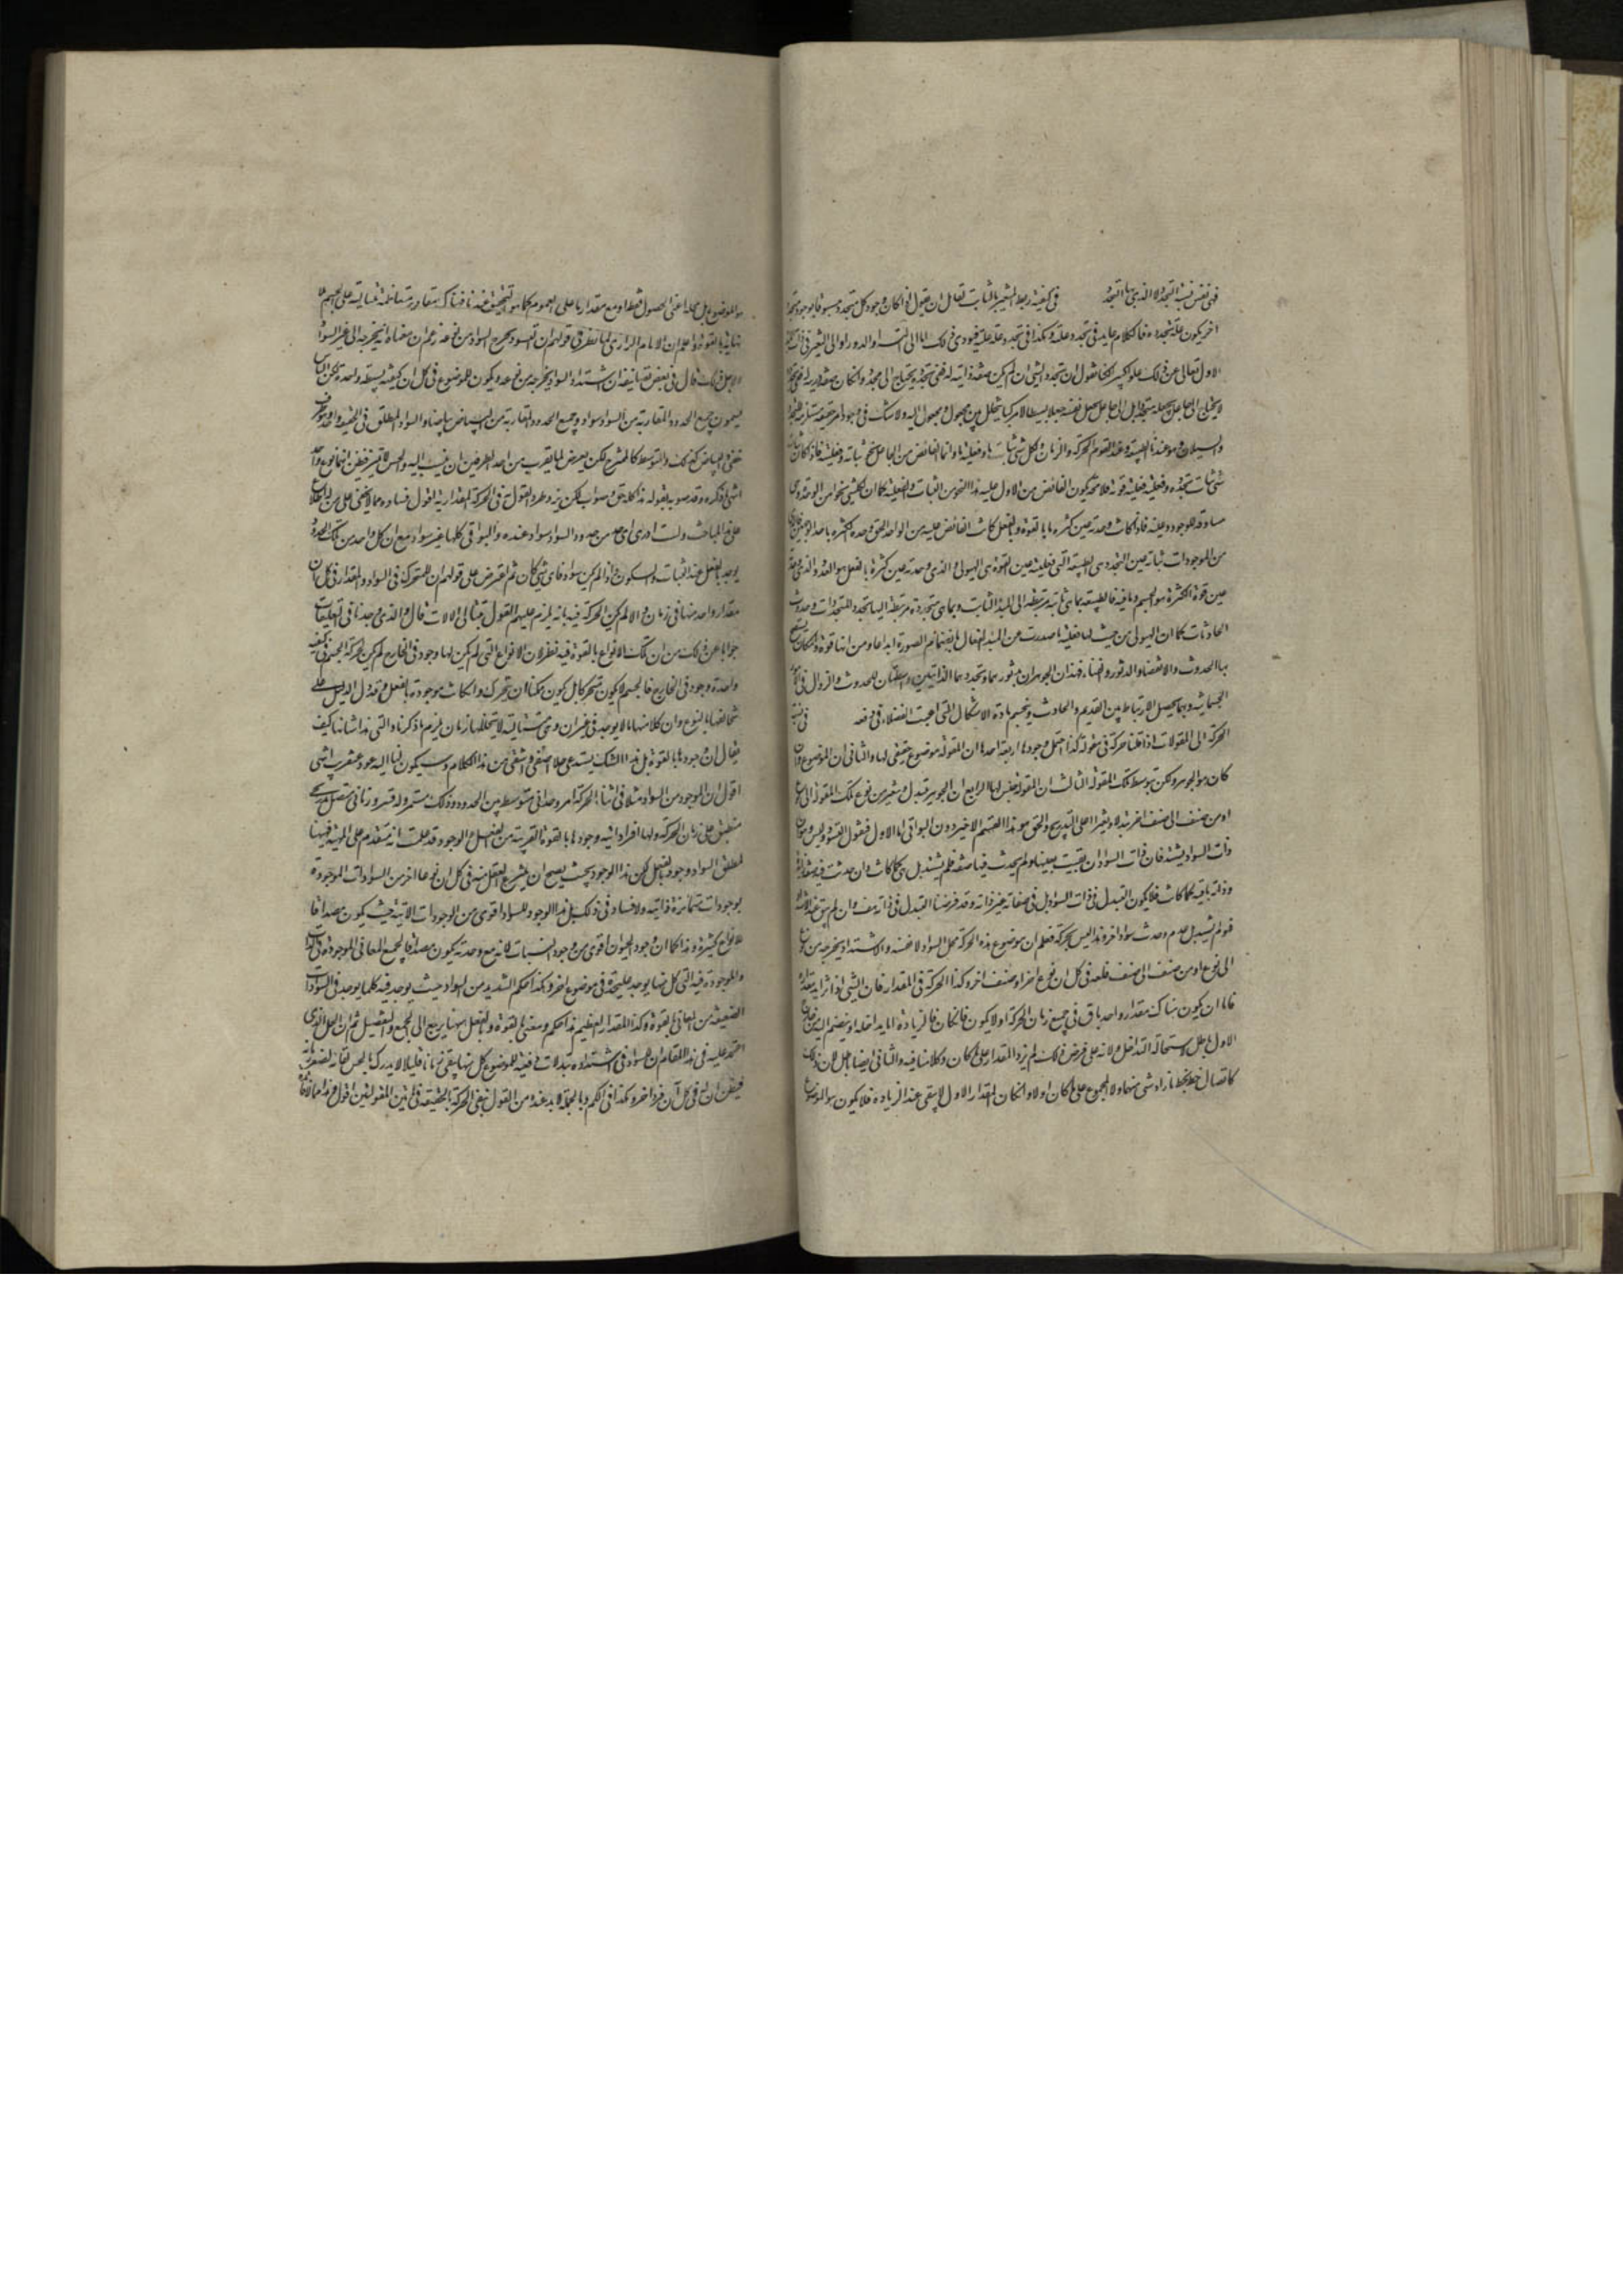 فهي نفس نسبة التجدد لا الذي بها التجدد في كيفية ربط المتغير بالثابت لقائل ان يقول اذا كان وجود كل متجدد مسبوقا بوجود متجدد
اخر يكون علة تجدده فالكلام عايد في تجدد علته وهكذا في تجدد علة علته فيؤدى ذلك اما الى التسلسل او الدور او الى التغير في ذات
الاول تعالى عن ذلك علوا كبيرا لكنا نقول ان تجدد الشيء ان لم يكن صفة ذاتية له ففي تجدده يحتاج الى مجدد وان كان صفة ذاتية له ففي تجدده
لا يحتاج الى جاعل يجعله متجددا بل الى جاعل يجعل نفسه جعلا بسيطا لا مركبا يتخلل بين مجعول ومجعول اليه ولا شك في وجود امر حقيقته مستلزمة للتجدد
والسيلان وهو عندنا الطبيعة وعند القوم الحركة والزمان ولكل شيء ثبات ما وفعلية ما وانما الفائض من الجاعل نحو ثباته وفعليته فاذا كان ثبات
شيء ثبات تجدده وفعليته فعلية قوته فلا محالة يكون الفائض من الاول عليه هذا النحو من الثبات والفعلية كما ان لكل شيء نحوا من الوحدة وهي
مساوقة للوجود وعينه فاذا كانت وحدته عين كثرة ما بالقوة وبالفعل كانت الفائض عليه من الواحد الحق وحدة الكثرة باحد الوجهين
من الموجودات ثباته عين التجدد هي الطبيعة والتي فعليته عين القوة هي الهيولى والذي وحدته عين كثرة بالفعل هو العدد والذي وحدته
عين قوة الكثرة هو الجسم وما فيه فالطبيعة بما هي ثابتة مرتبطة الى المبدأ الثابت وبما هي متجددة مرتبطة اليها تجدد المتجددات وحدوث
الحادثات كما ان الهيولى من حيث لها فعلية ما صدرت عن المبدأ الفعال بانضمام الصورة ابداعا ومن انها قوة وامكان
بها الحدوث والانقضاء والدثور والفناء فهذان الجوهران بدثورهما وتجددهما الذاتيين واسطتان للحدوث والزوال في الامور
الجسمانية وبهما يحصل الارتباط بين القديم والحادث وينحسم مادة الاشكال التي اعيت الفضلاء في دفعه في نسبة
الحركة الى المقولات اذا قلنا حركة في مقولة كذا احتمل وجوها اربعة احدها ان المقولة موضوع حقيقي لها والثاني ان الموضوع وان
كان هو الجوهر ولكن بتوسط تلك المقولة الثالث ان المقولة جنس لها الرابع ان الجوهر يتبدل ويتغير من نوع تلك المقولة الى نوع
او من صنف الى صنف اخر تبدلا وتغيرا على التدريج والحق هو هذا القسم الاخير دون البواقي اما الاول فنقول التسود ليس هو ان
ذات السواد يشتد فان ذات السواد ان بقيت بعينها ولم يحدث فيها صفة فلم يشتد بل هي كما كانت وان حدثت فيه صفة زائدة
وذاته باقية كما كانت فلا يكون التبدل في ذات السواد بل في صفاته غير ذاته وقد فرضنا التبدل في ذاته هف وان لم يبق عند الاشتداد
فهو لم يشتد بل عدم وحدث سواد اخر وهذا ليس بحركة فعلم ان موضوع هذه الحركة محل السواد لا نفسه والاشتداد يخرجه من نوع
الى نوع او من صنف الى صنف فله في كل ان نوع اخر او صنف اخر وكذا الحركة في المقدار فان الشيء اذا تزايد مقداره
فاما ان يكون هناك مقدار واحد باق في جميع زمان الحركة او لا يكون فان كان فالزيادة اما يداخله او ينضم اليه من خارج
الاول باطل لاستحالة التداخل ولانه على فرض ذلك لم يزد المقدار على ما كان وكلامنا فيه والثاني ايضا باطل لان ذلك
كاتصال خط بخط ما زاد شيء منهما ولا المجموع على ما كان اولا وان كان المقدار الاول لا يبقى عند الزيادة فلا يكون هو الموضوع
هو الموضوع بل محله اعني الهيولى فقط او مع مقدار ما على العموم كما هو التحقيق عندنا فهناك مقادير متعاقبة متتالية على الجسم بلا
نهاية بالقوة واعلم ان الامام الرازي لما نظر في قولهم ان التسود يخرج السواد من نوعه زعم ان معناه انه يخرجه الى غير السواد
ولاجل ذلك قال في بعض تصانيفه ان اشتداد السواد يخرجه من نوعه ويكون للموضوع في كل ان كيفية بسيطة واحدة لكن الناس
يسمون جميع الحدود المقاربة من السواد سوادا وجميع الحدود المقاربة من البياض بياضا والسواد المطلق في الحقيقة واحد وهو طرف
خفي والبياض كذلك والمتوسط كالممتزج لكن يعرض لما يقرب من احد الطرفين ان ينسب اليه والحس لا يميز فيظن انها نوع واحد
انتهى ما ذكره وقد صوبه بقوله هذا كلام حق وصواب لكن يرد على طرد القول في الحركة المقدارية اقول فساده مما لا يخفى على من له اطلاع
على هذه المباحث ولست ادري اي حد من حدود السواد سواد عنده والبواقي كلها غير سواد مع ان كل واحد من تلك الحدود
يوجد بالفعل عند الثبات والسكون واذا لم يكن سوادا فاي شيء كان ثم اعترض على قولهم ان للمتحرك في السواد والمقدار في كل ان
مقدارا واحدا منها في زمان والا لم يكن الحركة فيه بانه يلزم عليهم القول بتتالي الآنات قال والذي وجدنا في التعليقات
جوابا عن ذلك من ان تلك الانواع بالقوة فيه نظر لان الانواع التي لم يكن لها وجود في الخارج لم يكن حركة الجسم في كيفية
واحدة وجود في الخارج فالجسم لا يكون متحركا بل يكون ممكنا ان يتحرك وان كانت موجودة بالفعل وقد دل الدليل على
تخالفها بالنوع وان كلا منها مما لا يوجد في غير ان وهي متتالية لا يتخللها زمان يلزم ما ذكرناه والتي هذا شانها كيف
يقال ان وجودها بالقوة بل هذا الشك يستدعي حلا اصفى واشفى من هذا الكلام وسيكون لنا اليه عود عنقريب انتهى
اقول ان الموجود من السواد مثلا في اثناء الحركة امر وحداني متوسط بين الحدود وذلك مستمر وله فرد زماني متصل تدريجي
منطبق على زمان الحركة ولها افراد آنية وجودها بالقوة القريبة من الفعل والوجود قد علمت انه متقدم على المهية فيهنا
لمطلق السواد وجود بالفعل لكن هذا الوجود بحيث يصح ان ينتزع العقل منه في كل ان نوعا اخر من السوادات الموجودة
بوجودات متمايزة ذاتية ولا فساد في ذلك بل هذا الوجود للسواد اقوى من الوجودات الآنية حيث يكون مصداقا
لانواع كثيرة وهذا كما ان وجود الحيوان اقوى من وجود النبات لانه مع وحدته يكون مصداقا لجميع المعاني الموجودة في النبات
والموجودة فيه التي كل منها يوجد عليحدة في موضوع اخر وهكذا حكم الشديد من السواد حيث يوجد فيه كلما يوجد في السوادات
الضعيفة من المعاني بالقوة وكذا المقدار العظيم هذا حكمه ومعنى بالقوة وبالفعل ههنا يرجع الى الجمع والتفصيل ثم ان الحل الذي
اعتمد عليه في هذا المقام ان للسواد في اشتداده تبدلات دفعية للموضوع كل منها يبقى زمانا قليلا لا يدرك بالحس بقائه لصغر زمانه
فيظن ان له في كل آن فردا اخر وهكذا في الكم وبالجملة لا بد عنده من القول بنفي الحركة بالحقيقة في هاتين المقولتين اقول وهذا مما لا فائدة